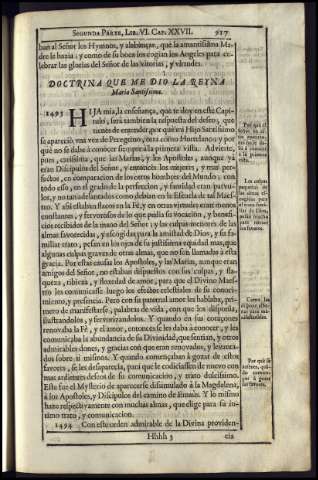 SEGUNDA PARTE, LIB. VI. CAP. XXVII. 917
ban al Señor los Hymnos, y alabanças, que la amantissima Ma-
dre le hazia: y como de su boca los cogian los Angeles para ce-
lebrar las glorias del Señor de las vitorias, y virtudes.
DOCTRINA QUE ME DIO LA REINA
Maria Santissima.
1493 HIJA mia, la enseñança, que te doy en este Capi-
tulo, será tambien la respuesta del deseo, que
tienes de entender, por qué mi Hijo Santissimo
se apareció, una vez de Peregrino, otra como Hortelano: y por
qué no se daba à conocer siempre à la primera vista. Advierte,
pues, carissima, que las Marias, y los Apostoles, aunque ya
eran Discipulos del Señor, y entonces los mejores, y mas per-
fectos, en comparacion de otros hombres del Mundo; con
todo esso, en el grado de la perfeccion, y santidad eran parvu-
los, y no tan adelantados como debian en la Escuela de tal Maes-
tro. Y assi estaban flacos en la Fè, y en otras virtudes eran menos
constantes, y fervorosos de lo que pedia su vocacion, y benefi-
cios recibidos de la mano del Señor: y las culpas menores de las
almas favorecidas, y escogidas para la amistad de Dios, y su fa-
miliar trato, pesan en los ojos de su justissima equidad mas, que
algunas culpas graves de otras almas, que no son llamadas à esta
gracia. Por estas causas los Apostoles, y las Marias, aunque eran
amigos del Señor, no estaban dispuestos con sus culpas, y fla-
queza, tibieza, y floxedad de amor, para que el Divino Maes-
tro les comunicasse luego los efectos celestiales de su conoci-
miento, y presencia. Pero con su paternal amor les hablaba, pri-
mero de manifestarse, palabras de vida, con que los disponia,
ilustrandolos, y fervorizandolos. Y quando en sus coraçones
renovaba la Fè, y el amor, entonces se les daba à conocer, y les
comunicaba la abundancia de su Divinidad, que sentian, y otros
admirables dones, y gracias con que eran renovados, y levanta-
dos sobre si mismos. Y quando començaban à gozar de estos
favores, se les desaparecia, para que le codiciassen de nuevo con
mas ardientes deseos de su comunicacion, y trato dulcissimo.
Este fue el Mysterio de aparecerse dissimulado à la Magdalena,
à los Apostoles, y Discipulos del camino de Emaus. Y lo mismo
haze respectivamente con muchas almas, que elige para su in-
timo trato, y comunicacion.
1494 Con este orden admirable de la Divina providen-
Hhhh 3 cia
Las culpas
pequeñas de
las almas es-
cogidas para
el trato fami-
liar de Dios,
pesan mucho